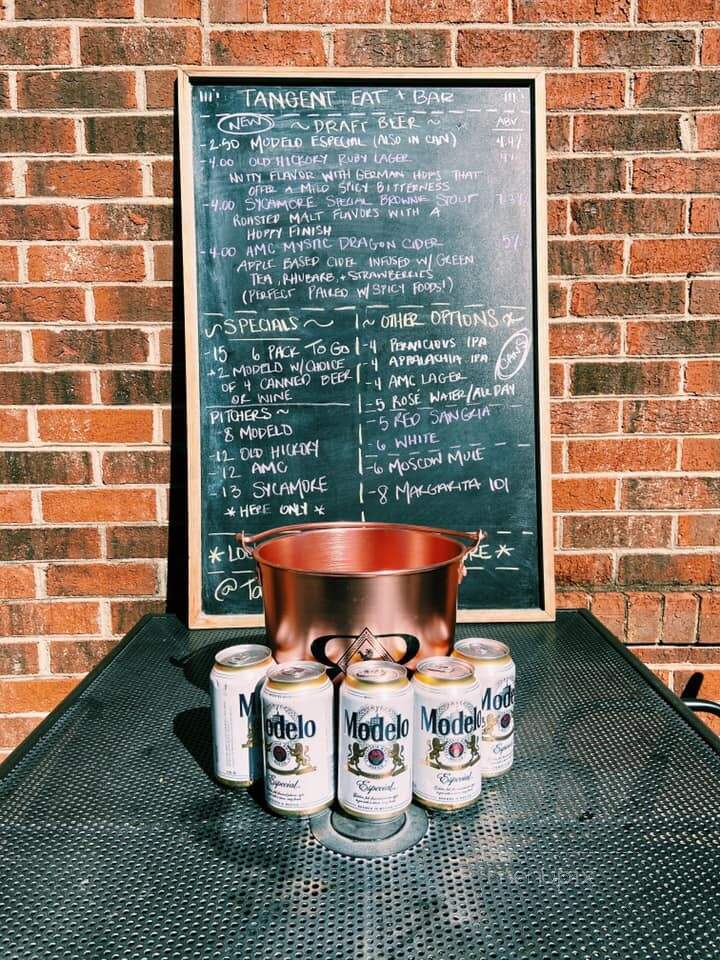 TANGENT EAT + BAR
NEW ~ DRAFT BEER ~ ABV
-2.50 MODELO ESPECIAL (ALSO IN CAN) 4.4%
-4.00 OLD HICKORY RUBY LAGER 4%
NUTTY FLAVOR WITH GERMAN HOPS THAT
OFFER A MILD SPICY BITTERNESS
-4.00 SYCAMORE SPECIAL BROWNE STOUT 7.3%
ROASTED MALT FLAVORS WITH A
HOPPY FINISH
-4.00 AMC MYSTIC DRAGON CIDER 5%
APPLE BASED CIDER INFUSED W/ GREEN
TEA, RHUBARB, + STRAWBERRIES
(PERFECT PAIRED W/ SPICY FOODS!)
~ SPECIALS ~
-15 6 PACK TO GO
+2 MODELO W/ CHOICE
OF 4 CANNED BEER
OR WINE
PITCHERS ~
-8 MODELO
-12 OLD HICKORY
-12 AMC
-13 SYCAMORE
* HERE ONLY *
~ OTHER OPTIONS ~
-4 PERNICIOUS IPA
-4 APPALACHIA IPA
CANS
-4 AMC LAGER
-5 ROSÉ WATER/ALL DAY
-5 RED SANGRIA
-6 WHITE
-6 MOSCOW MULE
-8 MARGARITA 101
* LO RE *
@TA
Modelo
Especial
Modelo
Especial
Modelo
Especial
Modelo
Especial
menupix